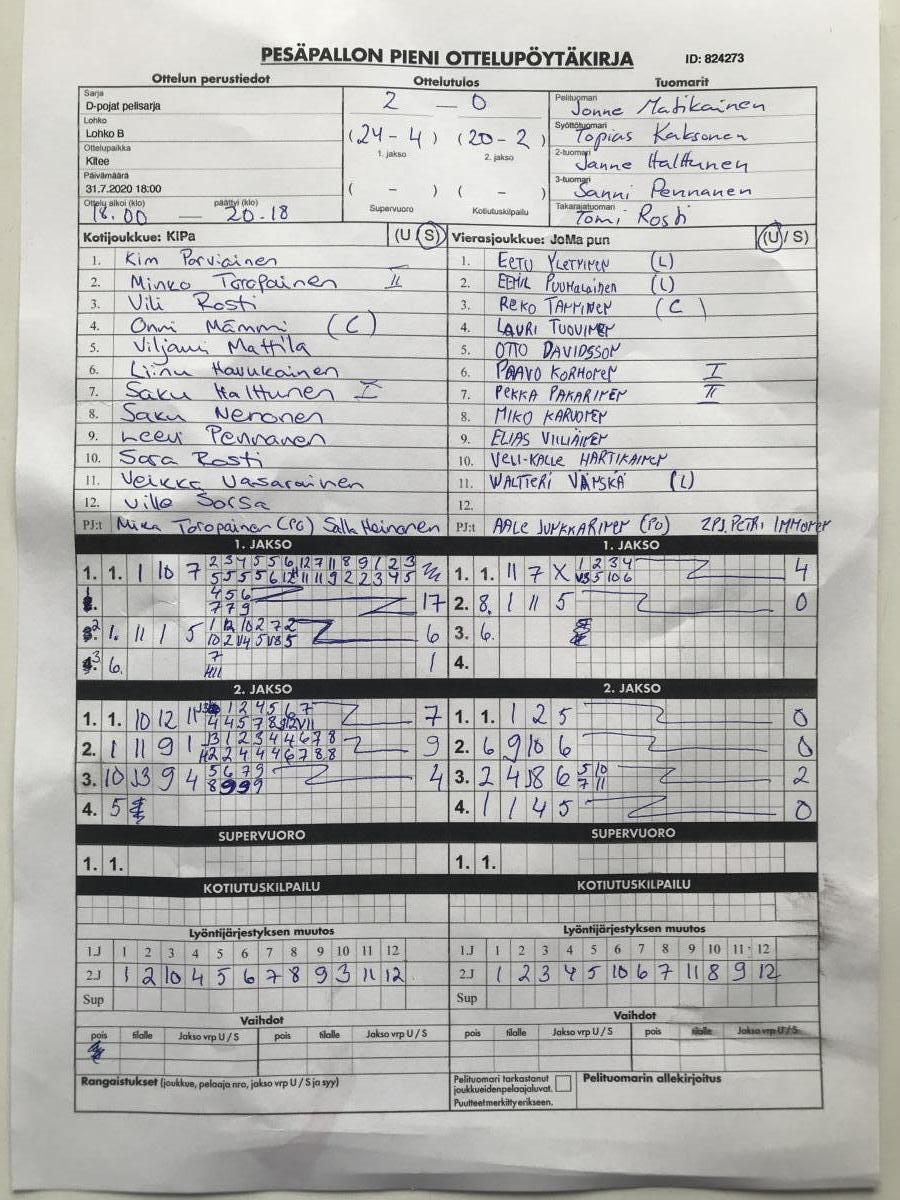 PESÄPALLON PIENI OTTELUPÖYTÄKIRJA ID: 824273
Ottelun perustiedot Ottelutulos Tuomarit
Sarja
D-pojat pelisarja
Lohko
Lohko B
Ottelupaikka
Kitee
Päivämäärä
31.7.2020 18:00
Ottelu alkoi (klo) päättyi (klo)
18.00 — 20.18
2 — 0
(24 - 4) (20 - 2)
1. jakso 2. jakso
( - ) ( - )
Supervuoro Kotiutuskilpailu
Pelituomari Jonne Matikainen
Syöttötuomari Topias Kaksonen
2-tuomari Janne Halttunen
3-tuomari Sanni Pennanen
Takarajatuomari Tomi Rosti
Kotijoukkue: KiPa (U S)
1. Kim Parviainen
2. Minko Toropainen II
3. Vili Rosti
4. Onni Mämmi (C)
5. Viljami Mattila
6. Liinu Havukainen
7. Saku Halttunen I
8. Saku Nenonen
9. Leevi Pennanen
10. Sara Rosti
11. Veikka Vasarainen
12. Ville Sorsa
PJ:t Mika Toropainen (PG) Salla Heinonen
Vierasjoukkue: JoMa pun (U / S)
1. EETU YLETYINEN (L)
2. EEMIL PUUMALAINEN (L)
3. REKO TAMMINEN (C)
4. LAURI TUOVINEN
5. OTTO DAVIDSSON
6. PAAVO KORHONEN I
7. PEKKA PAKARINEN II
8. MIKO KARVONEN
9. ELIAS VILLIÄINEN
10. VELI-KALLE HARTIKAINEN
11. WALTTERI VÄNSKÄ (L)
12.
PJ:t AALE JUKKARINEN (PO) 2PJ. PETRI IMMONEN
1. JAKSO
1. 1. 1 10 7 2 3 4 5 5 6 12 7 11 8 9 1 2 3
4 5 6
7 7 9 17
1. 11 1 5 1 12 10 2 7 2 6
6. 7 1
1. JAKSO
1. 1. 11 7 X 1 2 3 4 4
2. 8. 1 11 5 0
3. 6.
4.
2. JAKSO
1. 1. 10 12 11 1 2 4 5 6 7 7
2. 1 11 9 1 J3 1 2 3 4 4 6 7 8 9
3. 10 J3 9 4 5 6 7 9 4
8 9 9 9
4. 5
2. JAKSO
1. 1. 1 2 5 0
2. 6 9 10 6 0
3. 2 4 J8 6 5 10 2
7 11
4. 1 1 4 5 0
SUPERVUORO
1. 1.
SUPERVUORO
1. 1.
KOTIUTUSKILPAILU
KOTIUTUSKILPAILU
Lyöntijärjestyksen muutos
1.J 1 2 3 4 5 6 7 8 9 10 11 12
2.J 1 2 10 4 5 6 7 8 9 3 11 12
Sup
Lyöntijärjestyksen muutos
1.J 1 2 3 4 5 6 7 8 9 10 11 12
2.J 1 2 3 4 5 10 6 7 11 8 9 12
Sup
Vaihdot
pois tilalle Jakso vrp U / S pois tilalle Jakso vrp U / S
Vaihdot
pois tilalle Jakso vrp U / S pois tilalle Jakso vrp U / S
Rangaistukset (joukkue, pelaaja nro, jakso vrp U / S ja syy)
Pelituomari tarkastanut
joukkueidenpelaajaluvat.
Puutteet merkitty erikseen.
Pelituomarin allekirjoitus